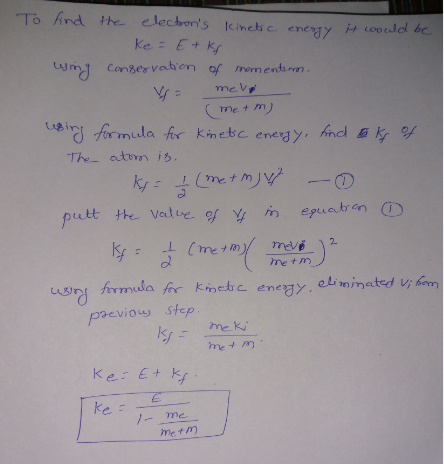 To find the electron's kinetic energy it would be
Ke = E + Kf
using conservation of momentum.
Vf = meVi / (me + m)
using formula for kinetic energy, find Kf of
The atom is.
Kf = 1/2 (me + m) Vf² — ①
putt the value of Vf in equation ①
Kf = 1/2 (me + m) (meVi / me + m)²
using formula for kinetic energy, eliminated Vi from
previous step.
Kf = meKi / me + m.
Ke = E + Kf.
Ke = E / 1 - me / me + m